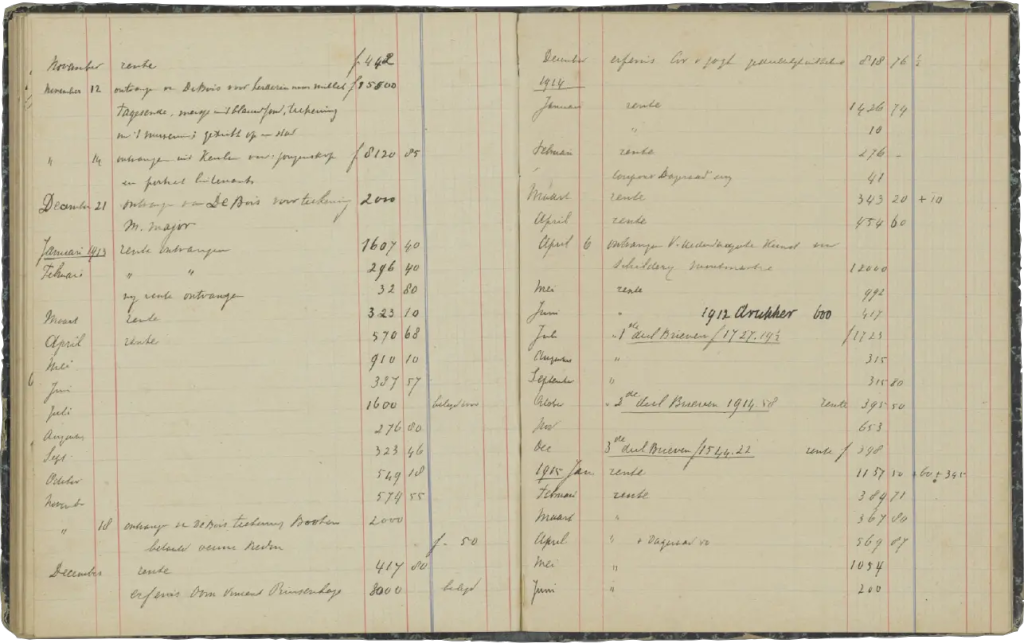 November rente f 442
November 12 ontvangen van De Bois voor f 15500
tagesende, teekening
" 14 ontvangen uit Keulen voor jongenskop f 8120 85
en portret luitenant
December 21 ontvangen van De Bois voor teekening 2000
M. Major
Januari 1913 rente ontvangen 1607 40
Februari " " 296 40
rente ontvangen 32 80
Maart rente 323 10
April rente 570 68
Mei 910 10
Juni 387 57
Juli 1600 belegd
Augustus 276 80
Sept. 323 46
October 549 18
Novemb 579 55
" 18 ontvangen van De Bois teekening Booten 2000
betaald f. 50
December rente 417 80
erfenis Oom Vincent Prinsenhage 8000 belegd
December erfenis Cor v Gogh 818 76 ½
1914
Januari rente 1426 74
" 10
Februari rente 276 -
coupons Dageraad 41
Maart rente 343 20 + 10
April rente 454 60
April 6 ontvangen v. Nederlandsche Kunst voor
Schilderij Montmartre 12000
Mei rente 992
Juni " 1912 drukker 600 417
Juli " 1ste deel Brieven f 1727.19½ f 1723
Augustus " 315
September " 315 80
October " 2de deel Brieven 1914.58 rente 395 50
Nov 653
Dec 3de deel Brieven f 1544.22 rente f 398
1915 Jan rente 1157 50 + 60 + 345
Februari rente 389 71
Maart " 367 80
April " + Dageraad 569 87
Mei " 1034
Juni " 200